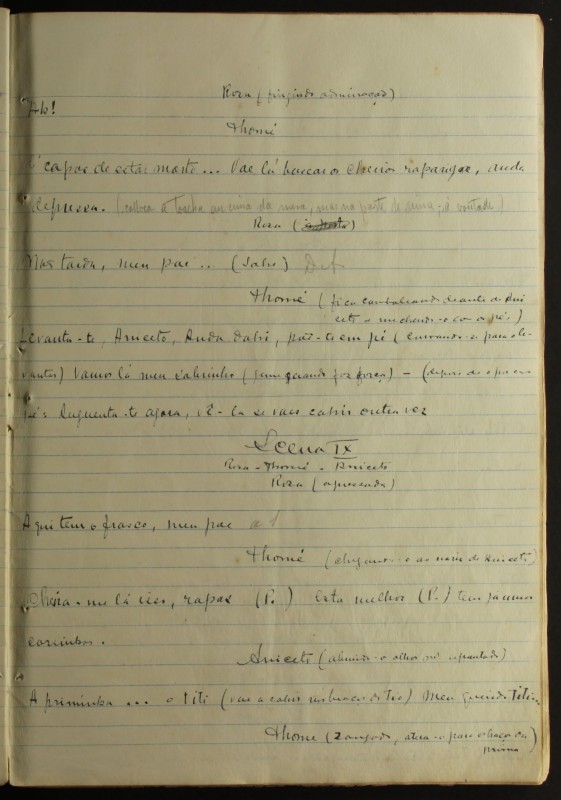 Roza (fingindo admiração)
Ah!
Thomé
É capaz de estar morto... Vae lá buscar os cheiros rapariga, anda
depressa. (colloca a tocha em cima da meza, mas na parte de cima, á vontade)
Roza
Não tarda, meu pae... (Sahe)
Thomé (fica cambaleando deante de Ani
ceto e mechendo-o com o pés)
Levanta-te, Aniceto, Anda dahi, põe-te em pé (curvando-se para o le-
vantar) Vamos lá meu sobrinho (fazendo força) - (depois de o pôr em
pé) Aguenta-te agora, vê-la se vaes cahir outra vez
Scena IX
Roza - Thomé - Aniceto
Roza (apressada)
Aqui tem o frasco, meu pae
Thomé (chegando-o ao nariz de Aniceto)
Cheira-me lá isso, rapaz (P.) Está melhor (P.) tem já umas
corsinhas.
Aniceto (abrindo os olhos espantado)
A priminha... o titi (vae a cahir nos braços do tio) Meu querido Titi
Thomé (zangado, atira-o para o braço da
prima)